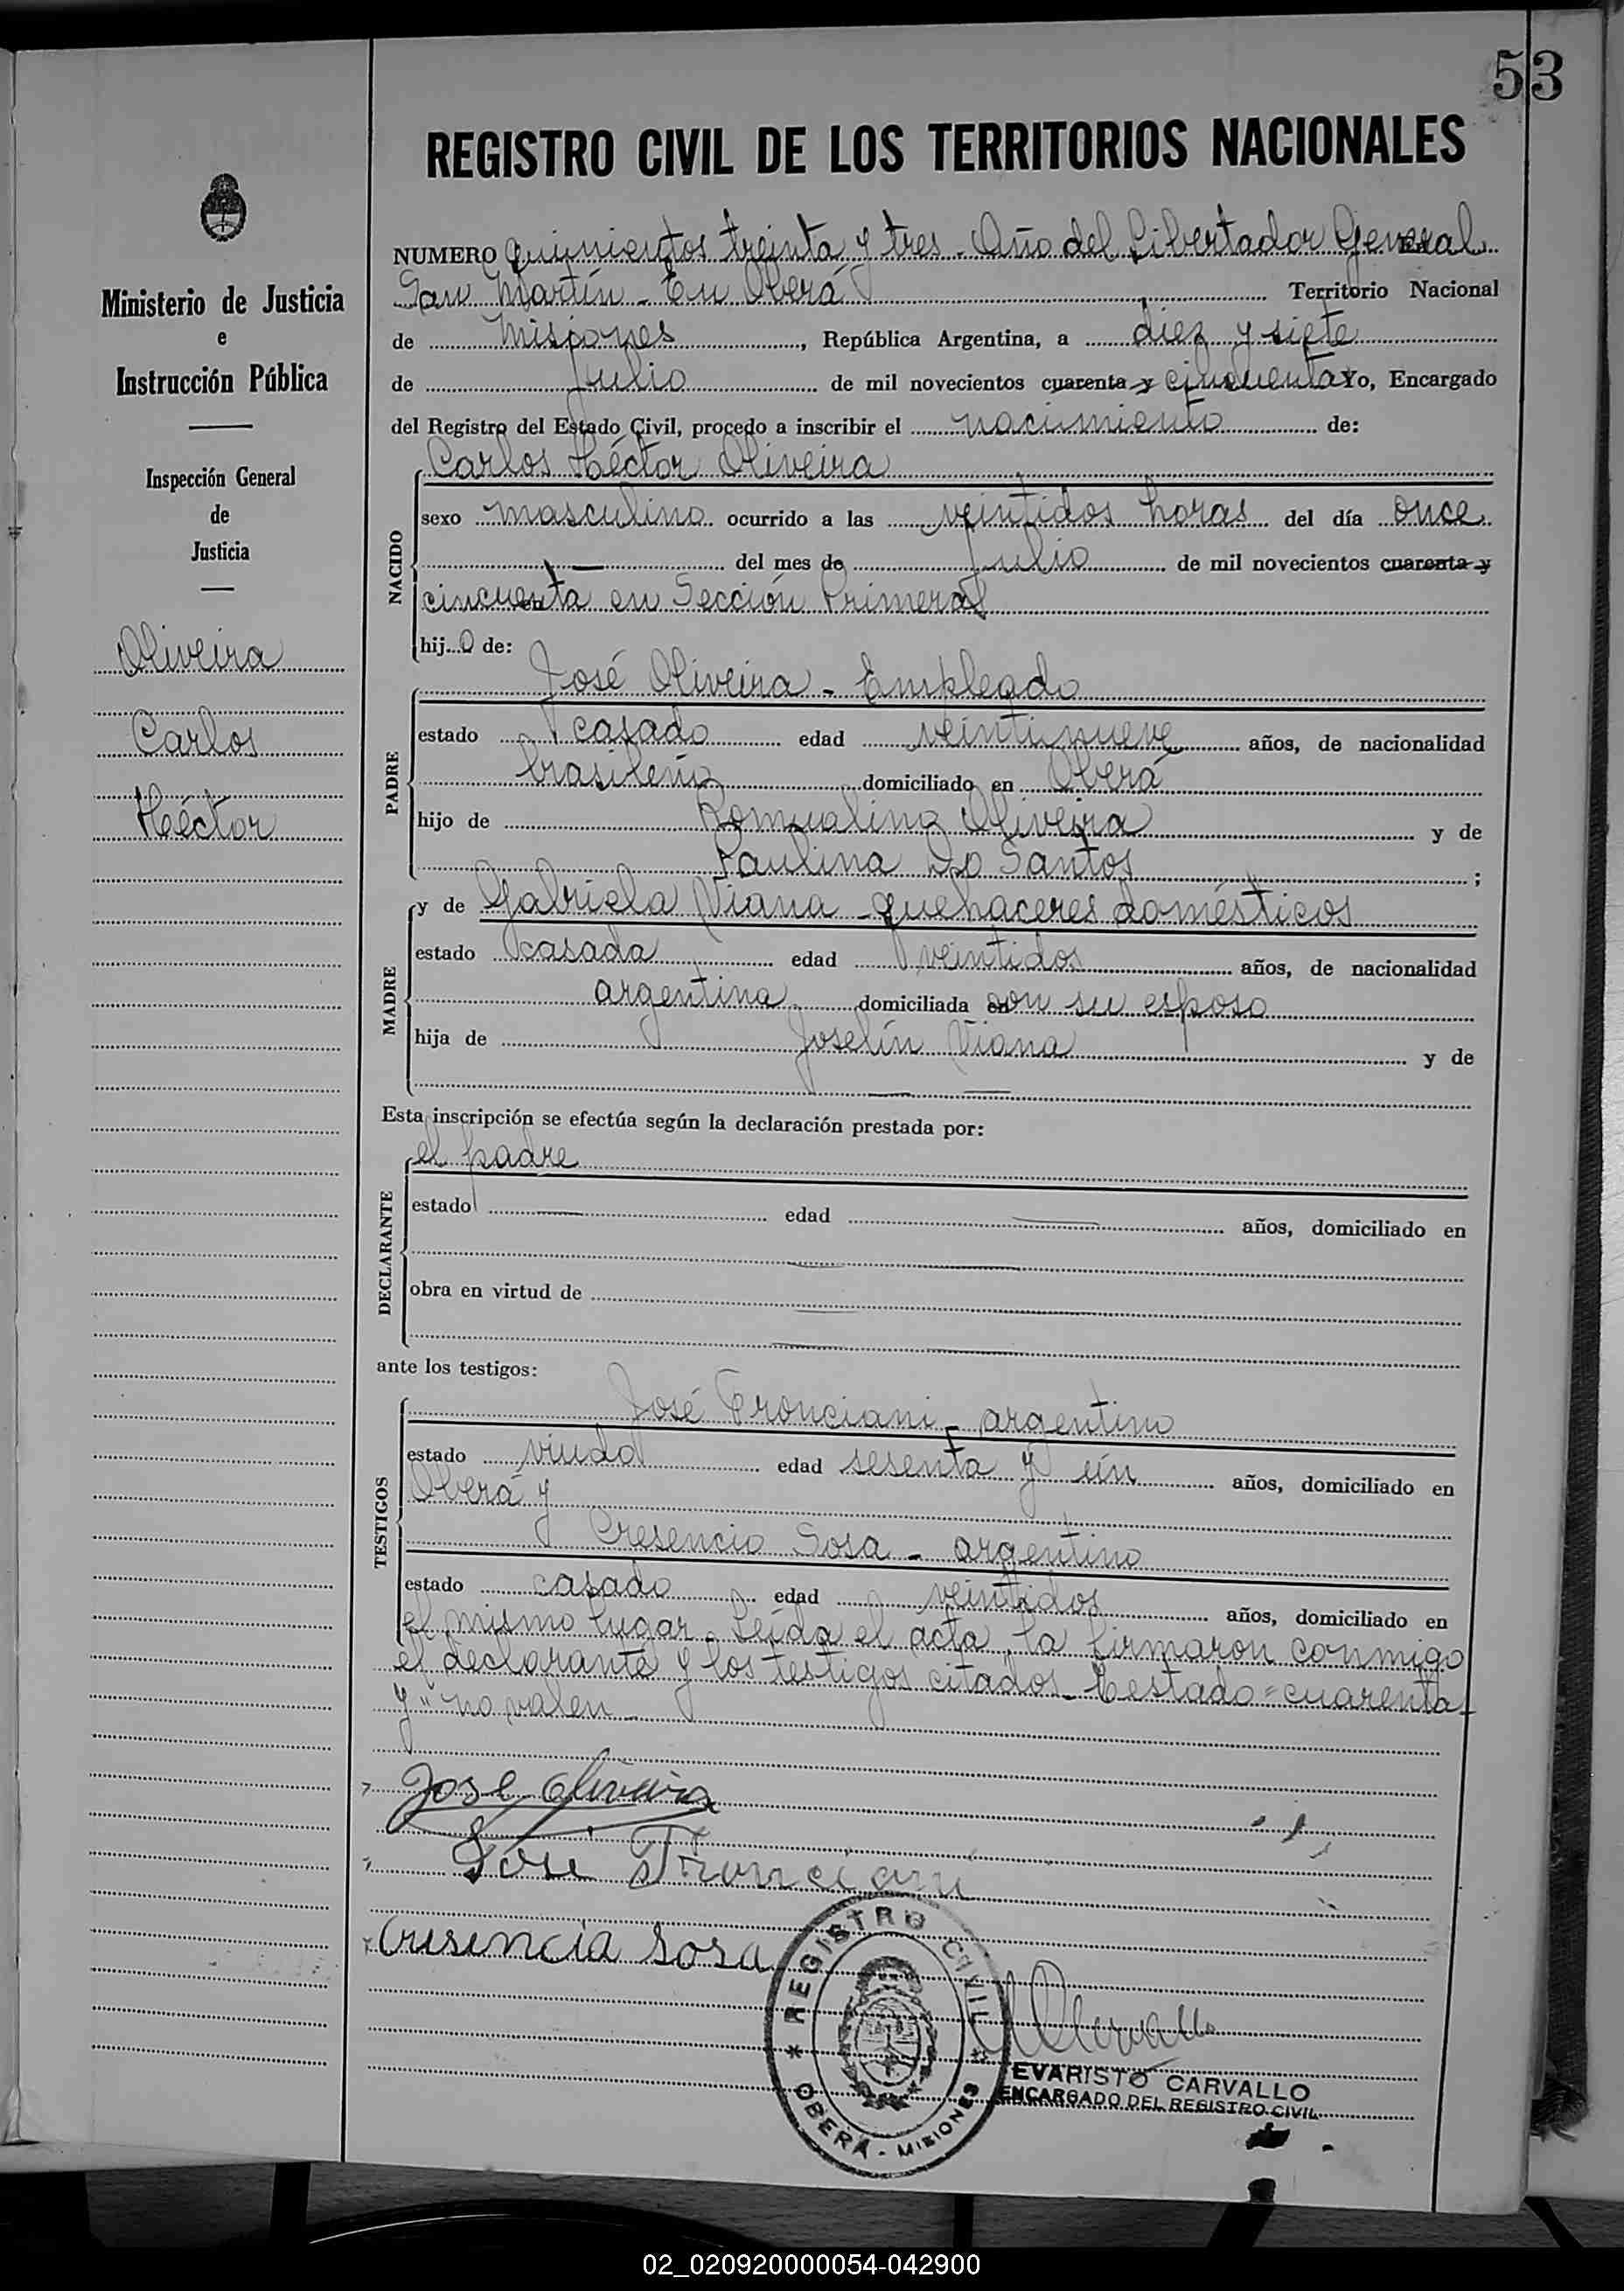 53
REGISTRO CIVIL DE LOS TERRITORIOS NACIONALES
Ministerio de Justicia
e
Instrucción Pública
Inspección General
de
Justicia
Oliveira
Carlos
Héctor
NUMERO quinientos treinta y tres - Año del Libertador General
San Martín - En Oberá Territorio Nacional
de Misiones, República Argentina, a diez y siete
de Julio de mil novecientos cuarenta y cincuenta Yo, Encargado
del Registro del Estado Civil, procedo a inscribir el nacimiento de:
Carlos Héctor Oliveira
NACIDO
sexo masculino ocurrido a las veintidos horas del día once
del mes de Julio de mil novecientos cuarenta y
cincuenta en Sección Primera
hijo de:
José Oliveira - Empleado
PADRE
estado casado edad veintinueve años, de nacionalidad
brasileña domiciliado en Oberá
hijo de Romualino Oliveira y de
Paulina Do Santos;
y de Gabriela Viana - quehaceres domésticos
MADRE
estado casada edad veintidos años, de nacionalidad
argentina domiciliada con su esposo
hija de Joselín Viana y de
Esta inscripción se efectúa según la declaración prestada por:
el padre
DECLARANTE
estado — edad — años, domiciliado en
obra en virtud de
ante los testigos:
José Tronciani - argentino
TESTIGOS
estado viudo edad sesenta y un años, domiciliado en
Oberá y
Cresencio Sosa - argentino
estado casado edad veintidos años, domiciliado en
el mismo lugar. Leída el acta, la firmaron conmigo
el declarante y los testigos citados - Testado "cuarenta
y" no valen -
Jose Oliveira
José Tronciani
Cresencia Sosa
REGISTRO CIVIL
* OBERÁ - MISIONES *
EVARISTO CARVALLO
ENCARGADO DEL REGISTRO CIVIL
02_020920000054-042900